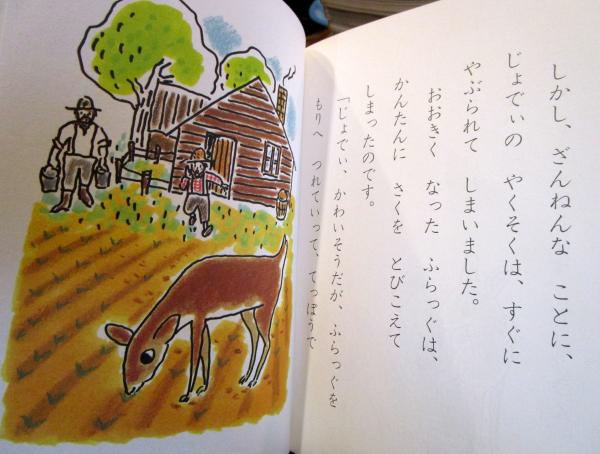 しかし、ざんねんな ことに、
じょでぃの やくそくは、すぐに
やぶられて しまいました。
おおきく なった ふらっぐは、
かんたんに さくを とびこえて
しまったのです。
「じょでぃ、かわいそうだが、ふらっぐを
もりへ つれていって、てっぽうで